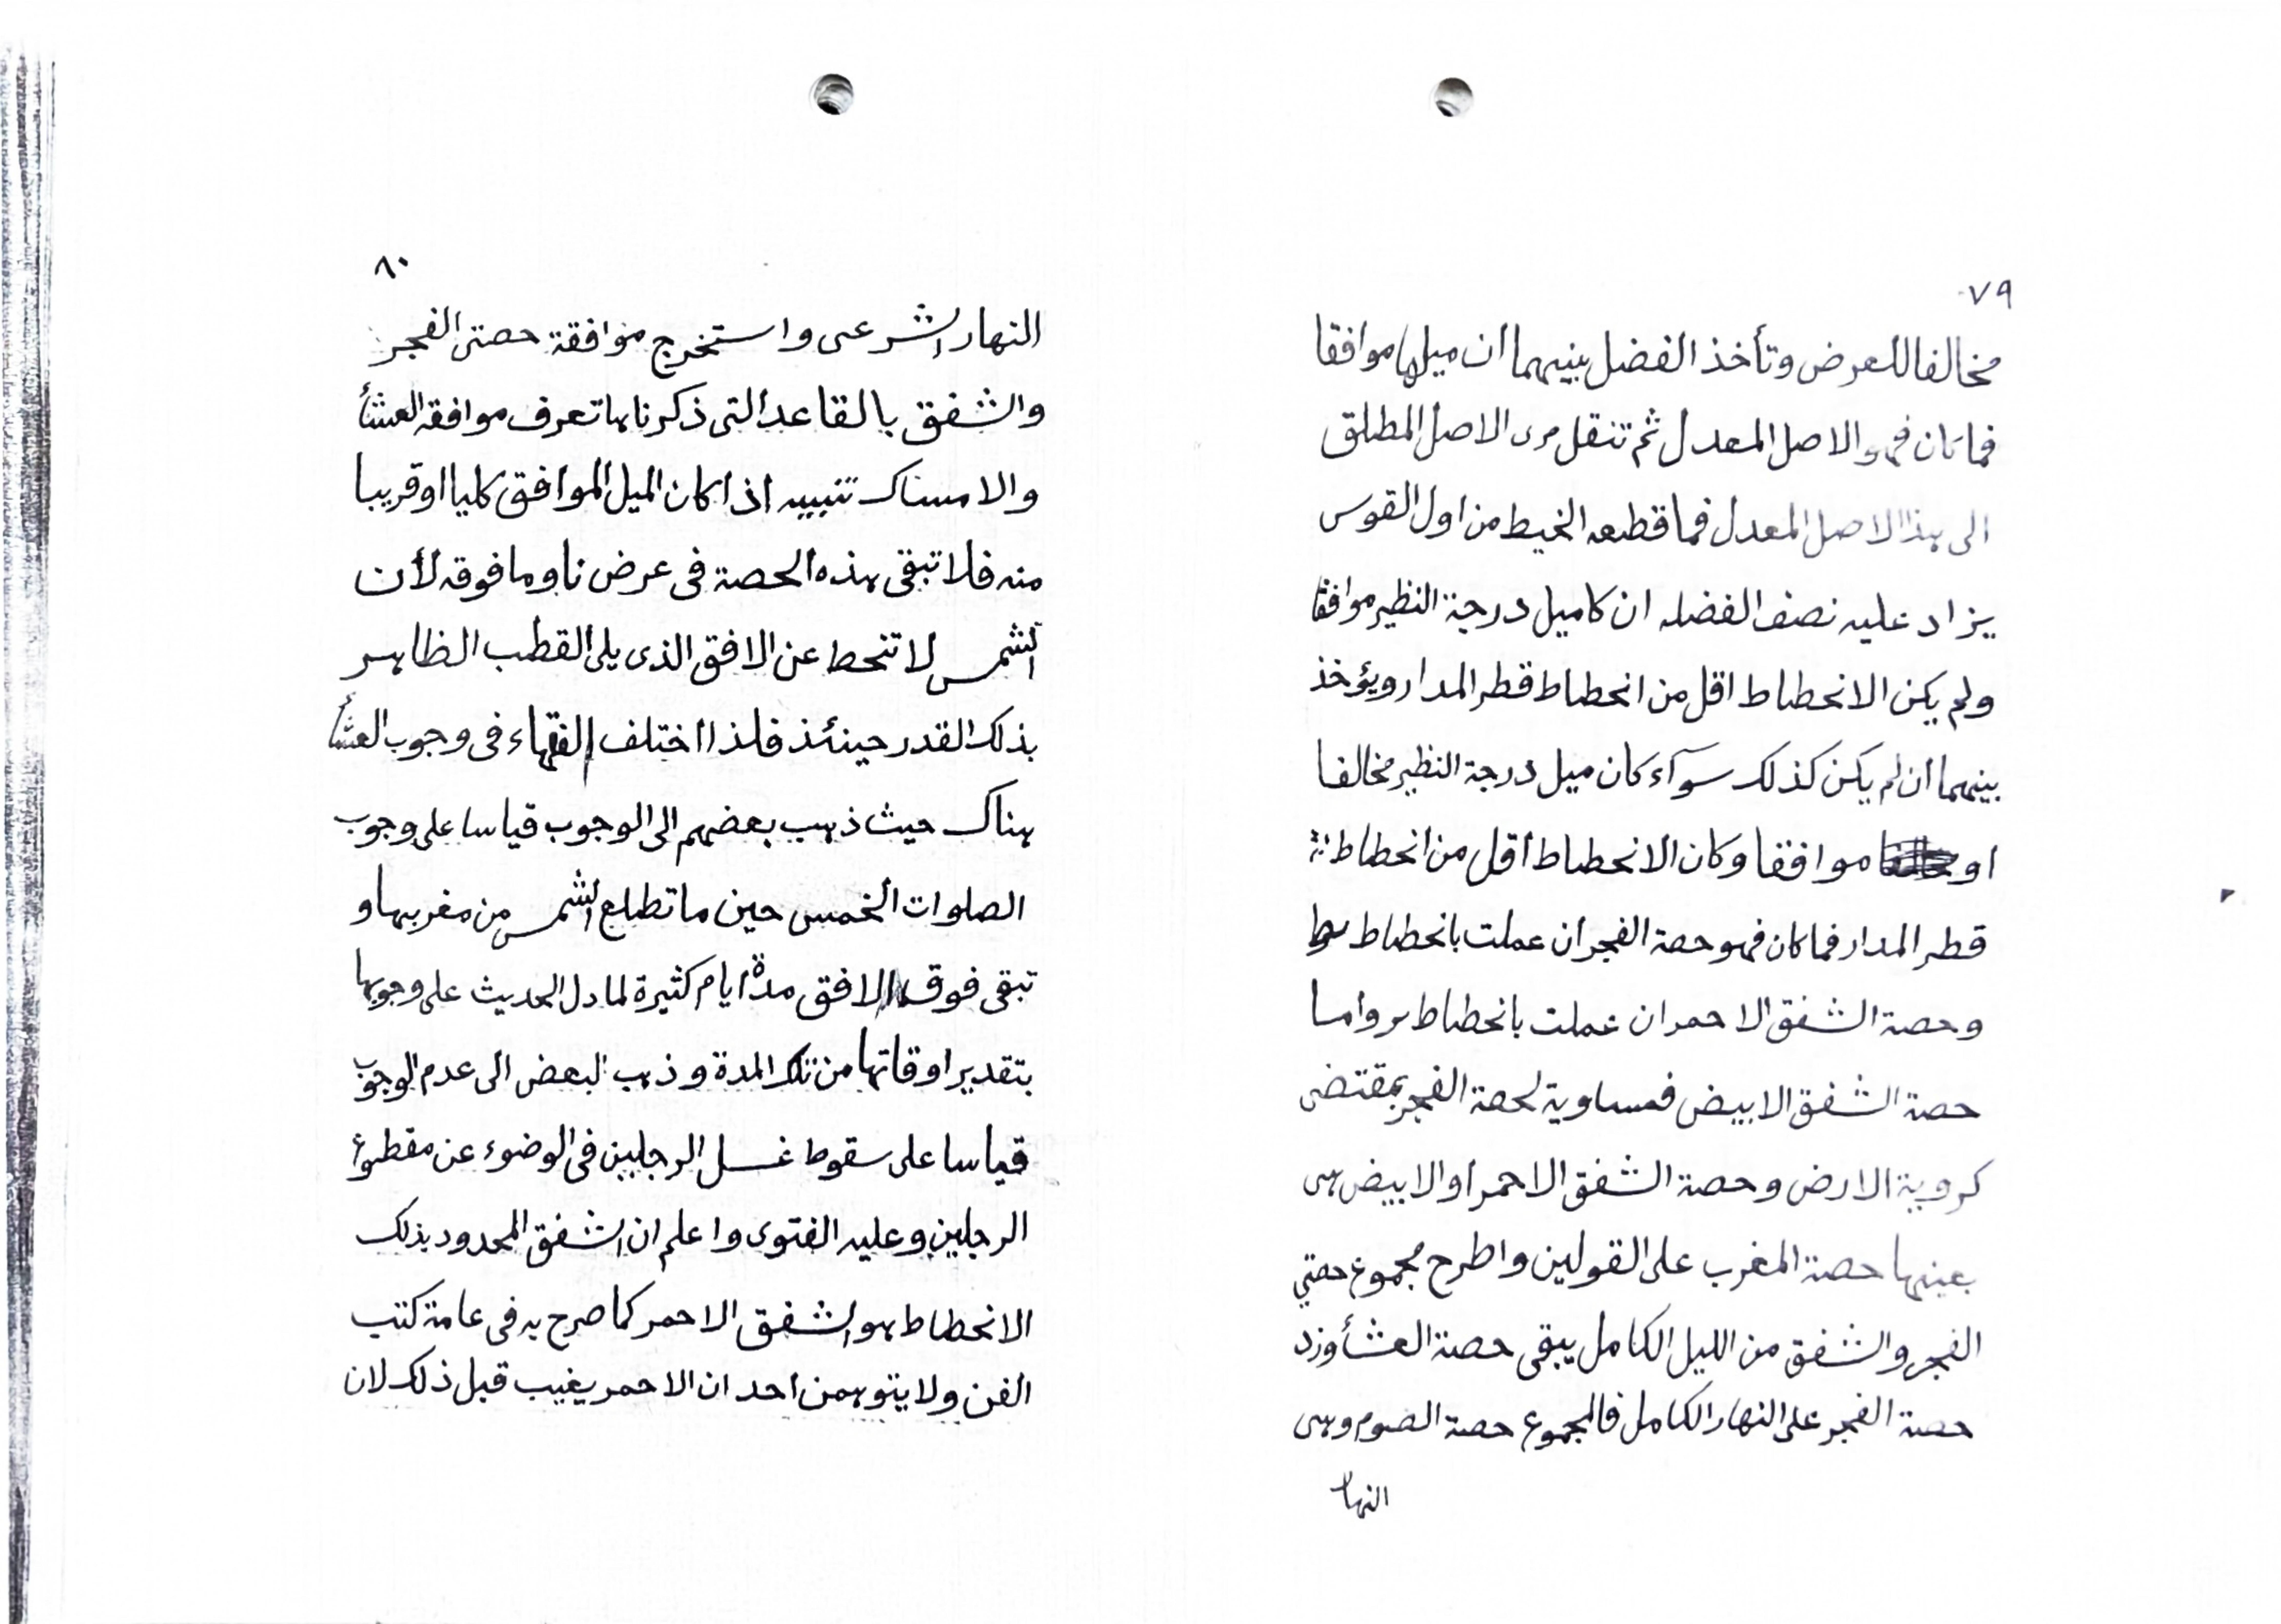 ٧٩
مخالفا للعرض وتأخذ الفضل بينهما ان ميلها موافقا
فما كان فهو الاصل المعدل ثم تنقل مرى الاصل المطلق
الى هذا الاصل المعدل فما قطعه الخيط من اول القوس
يزاد عليه نصف الفضله ان كا ميل درجة النظير موافقا
ولم يكن الانحطاط اقل من انحطاط قطر المدار ويؤخذ
بينهما ان لم يكن كذلك سوآء كان ميل درجة النظير مخالفا
او موافقا وكان الانحطاط اقل من انحطاط
قطر المدار فما كان فهو حصة الفجر ان عملت بانحطاط يط
وحصة الشفق الاحمر ان عملت بانحطاط يز واما
حصة الشفق الابيض فمساوية لحصة الفجر بمقتضى
كروية الارض وحصة الشفق الاحمر او الابيض هى
بعينها حصة المغرب على القولين واطرح مجموع حصتي
الفجر والشفق من الليل الكامل يبقى حصة العشأ وزد
حصة الفجر على النهار الكامل فالمجموع حصة الصوم وهى
النهار
٨٠
النهار الشرعى واستخرج موافقة حصتى الفجر
والشفق بالقاعد التى ذكرناها تعرف موافقه العشأ
والامساك تنبيه اذا كان الميل الموافق كليا او قريبا
منه فلا تبقى هذه الحصة فى عرض نا وما فوقه لأن
الشمس لا تنحط عن الافق الذى يلى القطب الظاهر
بذلك القدر حينئذ فلذا اختلف الفقهاء فى وجوب العشأ
هناك حيث ذهب بعضهم الى الوجوب قياسا على وجوب
الصلوات الخمس حين ما تطلع الشمس من مغربها و
تبقى فوق الافق مدة ايام كثيرة لما دل الحديث على وجوبها
بتقدير اوقاتها من تلك المدة وذهب البعض الى عدم الوجوب
قياسا على سقوط غسل الرجلين فى الوضوء عن مقطوع
الرجلين وعليه الفتوى واعلم ان الشفق المحدود بذلك
الانحطاط هو الشفق الاحمر كما صرح به فى عامة كتب
الفن ولا يتوهمن احد ان الاحمر يغيب قبل ذلك لان